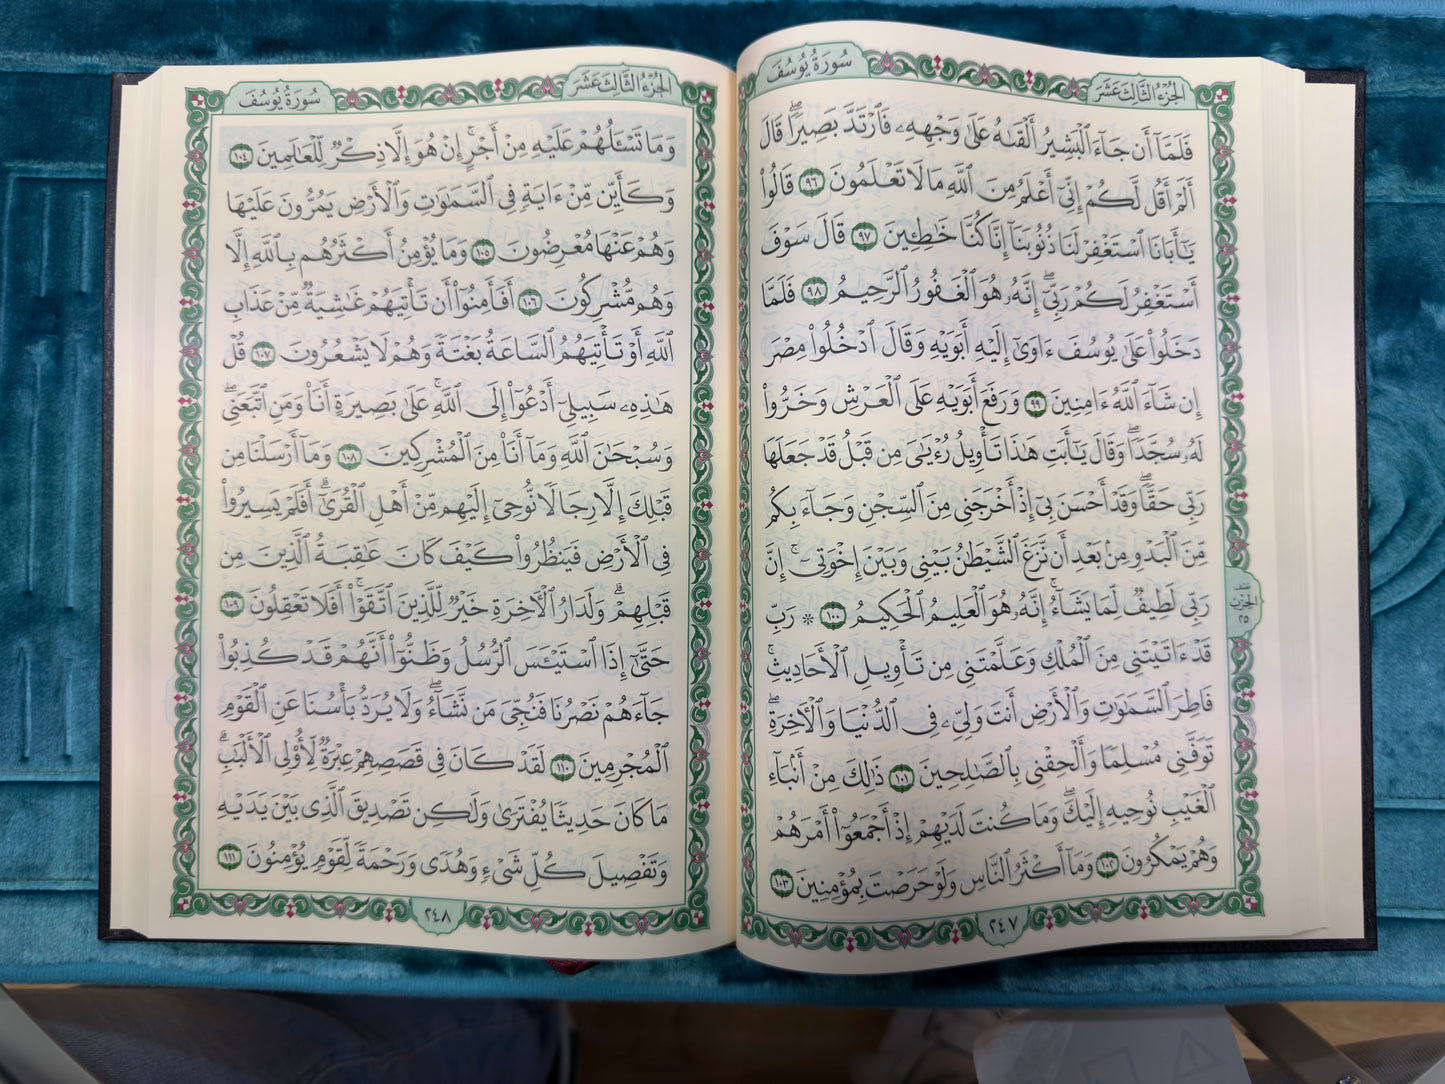 الجزء الثالث عشر
سورة يوسف
فَلَمَّآ أَن جَآءَ ٱلْبَشِيرُ أَلْقَىٰهُ عَلَىٰ وَجْهِهِۦ فَٱرْتَدَّ بَصِيرًا ۖ قَالَ
أَلَمْ أَقُل لَّكُمْ إِنِّىٓ أَعْلَمُ مِنَ ٱللَّهِ مَا لَا تَعْلَمُونَ ٩٦ قَالُوا۟
يَـٰٓأَبَانَا ٱسْتَغْفِرْ لَنَا ذُنُوبَنَآ إِنَّا كُنَّا خَـٰطِـِٔينَ ٩٧ قَالَ سَوْفَ
أَسْتَغْفِرُ لَكُمْ رَبِّىٓ ۖ إِنَّهُۥ هُوَ ٱلْغَفُورُ ٱلرَّحِيمُ ٩٨ فَلَمَّا
دَخَلُوا۟ عَلَىٰ يُوسُفَ ءَاوَىٰٓ إِلَيْهِ أَبَوَيْهِ وَقَالَ ٱدْخُلُوا۟ مِصْرَ
إِن شَآءَ ٱللَّهُ ءَامِنِينَ ٩٩ وَرَفَعَ أَبَوَيْهِ عَلَى ٱلْعَرْشِ وَخَرُّوا۟
لَهُۥ سُجَّدًا ۖ وَقَالَ يَـٰٓأَبَتِ هَـٰذَا تَأْوِيلُ رُءْيَـٰىَ مِن قَبْلُ قَدْ جَعَلَهَا
رَبِّى حَقًّا ۖ وَقَدْ أَحْسَنَ بِىٓ إِذْ أَخْرَجَنِى مِنَ ٱلسِّجْنِ وَجَآءَ بِكُم
مِّنَ ٱلْبَدْوِ مِنۢ بَعْدِ أَن نَّزَغَ ٱلشَّيْطَـٰنُ بَيْنِى وَبَيْنَ إِخْوَتِىٓ ۚ إِنَّ
رَبِّى لَطِيفٌ لِّمَا يَشَآءُ ۚ إِنَّهُۥ هُوَ ٱلْعَلِيمُ ٱلْحَكِيمُ ١٠٠ ۞ رَبِّ
قَدْ ءَاتَيْتَنِى مِنَ ٱلْمُلْكِ وَعَلَّمْتَنِى مِن تَأْوِيلِ ٱلْأَحَادِيثِ ۚ
فَاطِرَ ٱلسَّمَـٰوَٰتِ وَٱلْأَرْضِ أَنتَ وَلِىِّۦ فِى ٱلدُّنْيَا وَٱلْـَٔاخِرَةِ ۖ
تَوَفَّنِى مُسْلِمًا وَأَلْحِقْنِى بِٱلصَّـٰلِحِينَ ١٠١ ذَٰلِكَ مِنْ أَنۢبَآءِ
ٱلْغَيْبِ نُوحِيهِ إِلَيْكَ ۖ وَمَا كُنتَ لَدَيْهِمْ إِذْ أَجْمَعُوٓا۟ أَمْرَهُمْ
وَهُمْ يَمْكُرُونَ ١٠٢ وَمَآ أَكْثَرُ ٱلنَّاسِ وَلَوْ حَرَصْتَ بِمُؤْمِنِينَ ١٠٣
الحزب
٢٥
٢٤٧
الجزء الثالث عشر
سورة يوسف
وَمَا تَسْـَٔلُهُمْ عَلَيْهِ مِنْ أَجْرٍ ۚ إِنْ هُوَ إِلَّا ذِكْرٌ لِّلْعَـٰلَمِينَ ١٠٤
وَكَأَيِّن مِّنْ ءَايَةٍ فِى ٱلسَّمَـٰوَٰتِ وَٱلْأَرْضِ يَمُرُّونَ عَلَيْهَا
وَهُمْ عَنْهَا مُعْرِضُونَ ١٠٥ وَمَا يُؤْمِنُ أَكْثَرُهُم بِٱللَّهِ إِلَّا
وَهُم مُّشْرِكُونَ ١٠٦ أَفَأَمِنُوٓا۟ أَن تَأْتِيَهُمْ غَـٰشِيَةٌ مِّنْ عَذَابِ
ٱللَّهِ أَوْ تَأْتِيَهُمُ ٱلسَّاعَةُ بَغْتَةً وَهُمْ لَا يَشْعُرُونَ ١٠٧ قُلْ
هَـٰذِهِۦ سَبِيلِىٓ أَدْعُوٓا۟ إِلَى ٱللَّهِ ۚ عَلَىٰ بَصِيرَةٍ أَنَا۠ وَمَنِ ٱتَّبَعَنِى ۖ
وَسُبْحَـٰنَ ٱللَّهِ وَمَآ أَنَا۠ مِنَ ٱلْمُشْرِكِينَ ١٠٨ وَمَآ أَرْسَلْنَا مِن
قَبْلِكَ إِلَّا رِجَالًا نُّوحِىٓ إِلَيْهِم مِّنْ أَهْلِ ٱلْقُرَىٰٓ ۗ أَفَلَمْ يَسِيرُوا۟
فِى ٱلْأَرْضِ فَيَنظُرُوا۟ كَيْفَ كَانَ عَـٰقِبَةُ ٱلَّذِينَ مِن
قَبْلِهِمْ ۗ وَلَدَارُ ٱلْـَٔاخِرَةِ خَيْرٌ لِّلَّذِينَ ٱتَّقَوْا۟ ۗ أَفَلَا تَعْقِلُونَ ١٠٩
حَتَّىٰٓ إِذَا ٱسْتَيْـَٔسَ ٱلرُّسُلُ وَظَنُّوٓا۟ أَنَّهُمْ قَدْ كُذِبُوا۟
جَآءَهُمْ نَصْرُنَا فَنُجِّىَ مَن نَّشَآءُ ۖ وَلَا يُرَدُّ بَأْسُنَا عَنِ ٱلْقَوْمِ
ٱلْمُجْرِمِينَ ١١٠ لَقَدْ كَانَ فِى قَصَصِهِمْ عِبْرَةٌ لِّأُو۟لِى ٱلْأَلْبَـٰبِ ۗ
مَا كَانَ حَدِيثًا يُفْتَرَىٰ وَلَـٰكِن تَصْدِيقَ ٱلَّذِى بَيْنَ يَدَيْهِ
وَتَفْصِيلَ كُلِّ شَىْءٍ وَهُدًى وَرَحْمَةً لِّقَوْمٍ يُؤْمِنُونَ ١١١
٢٤٨